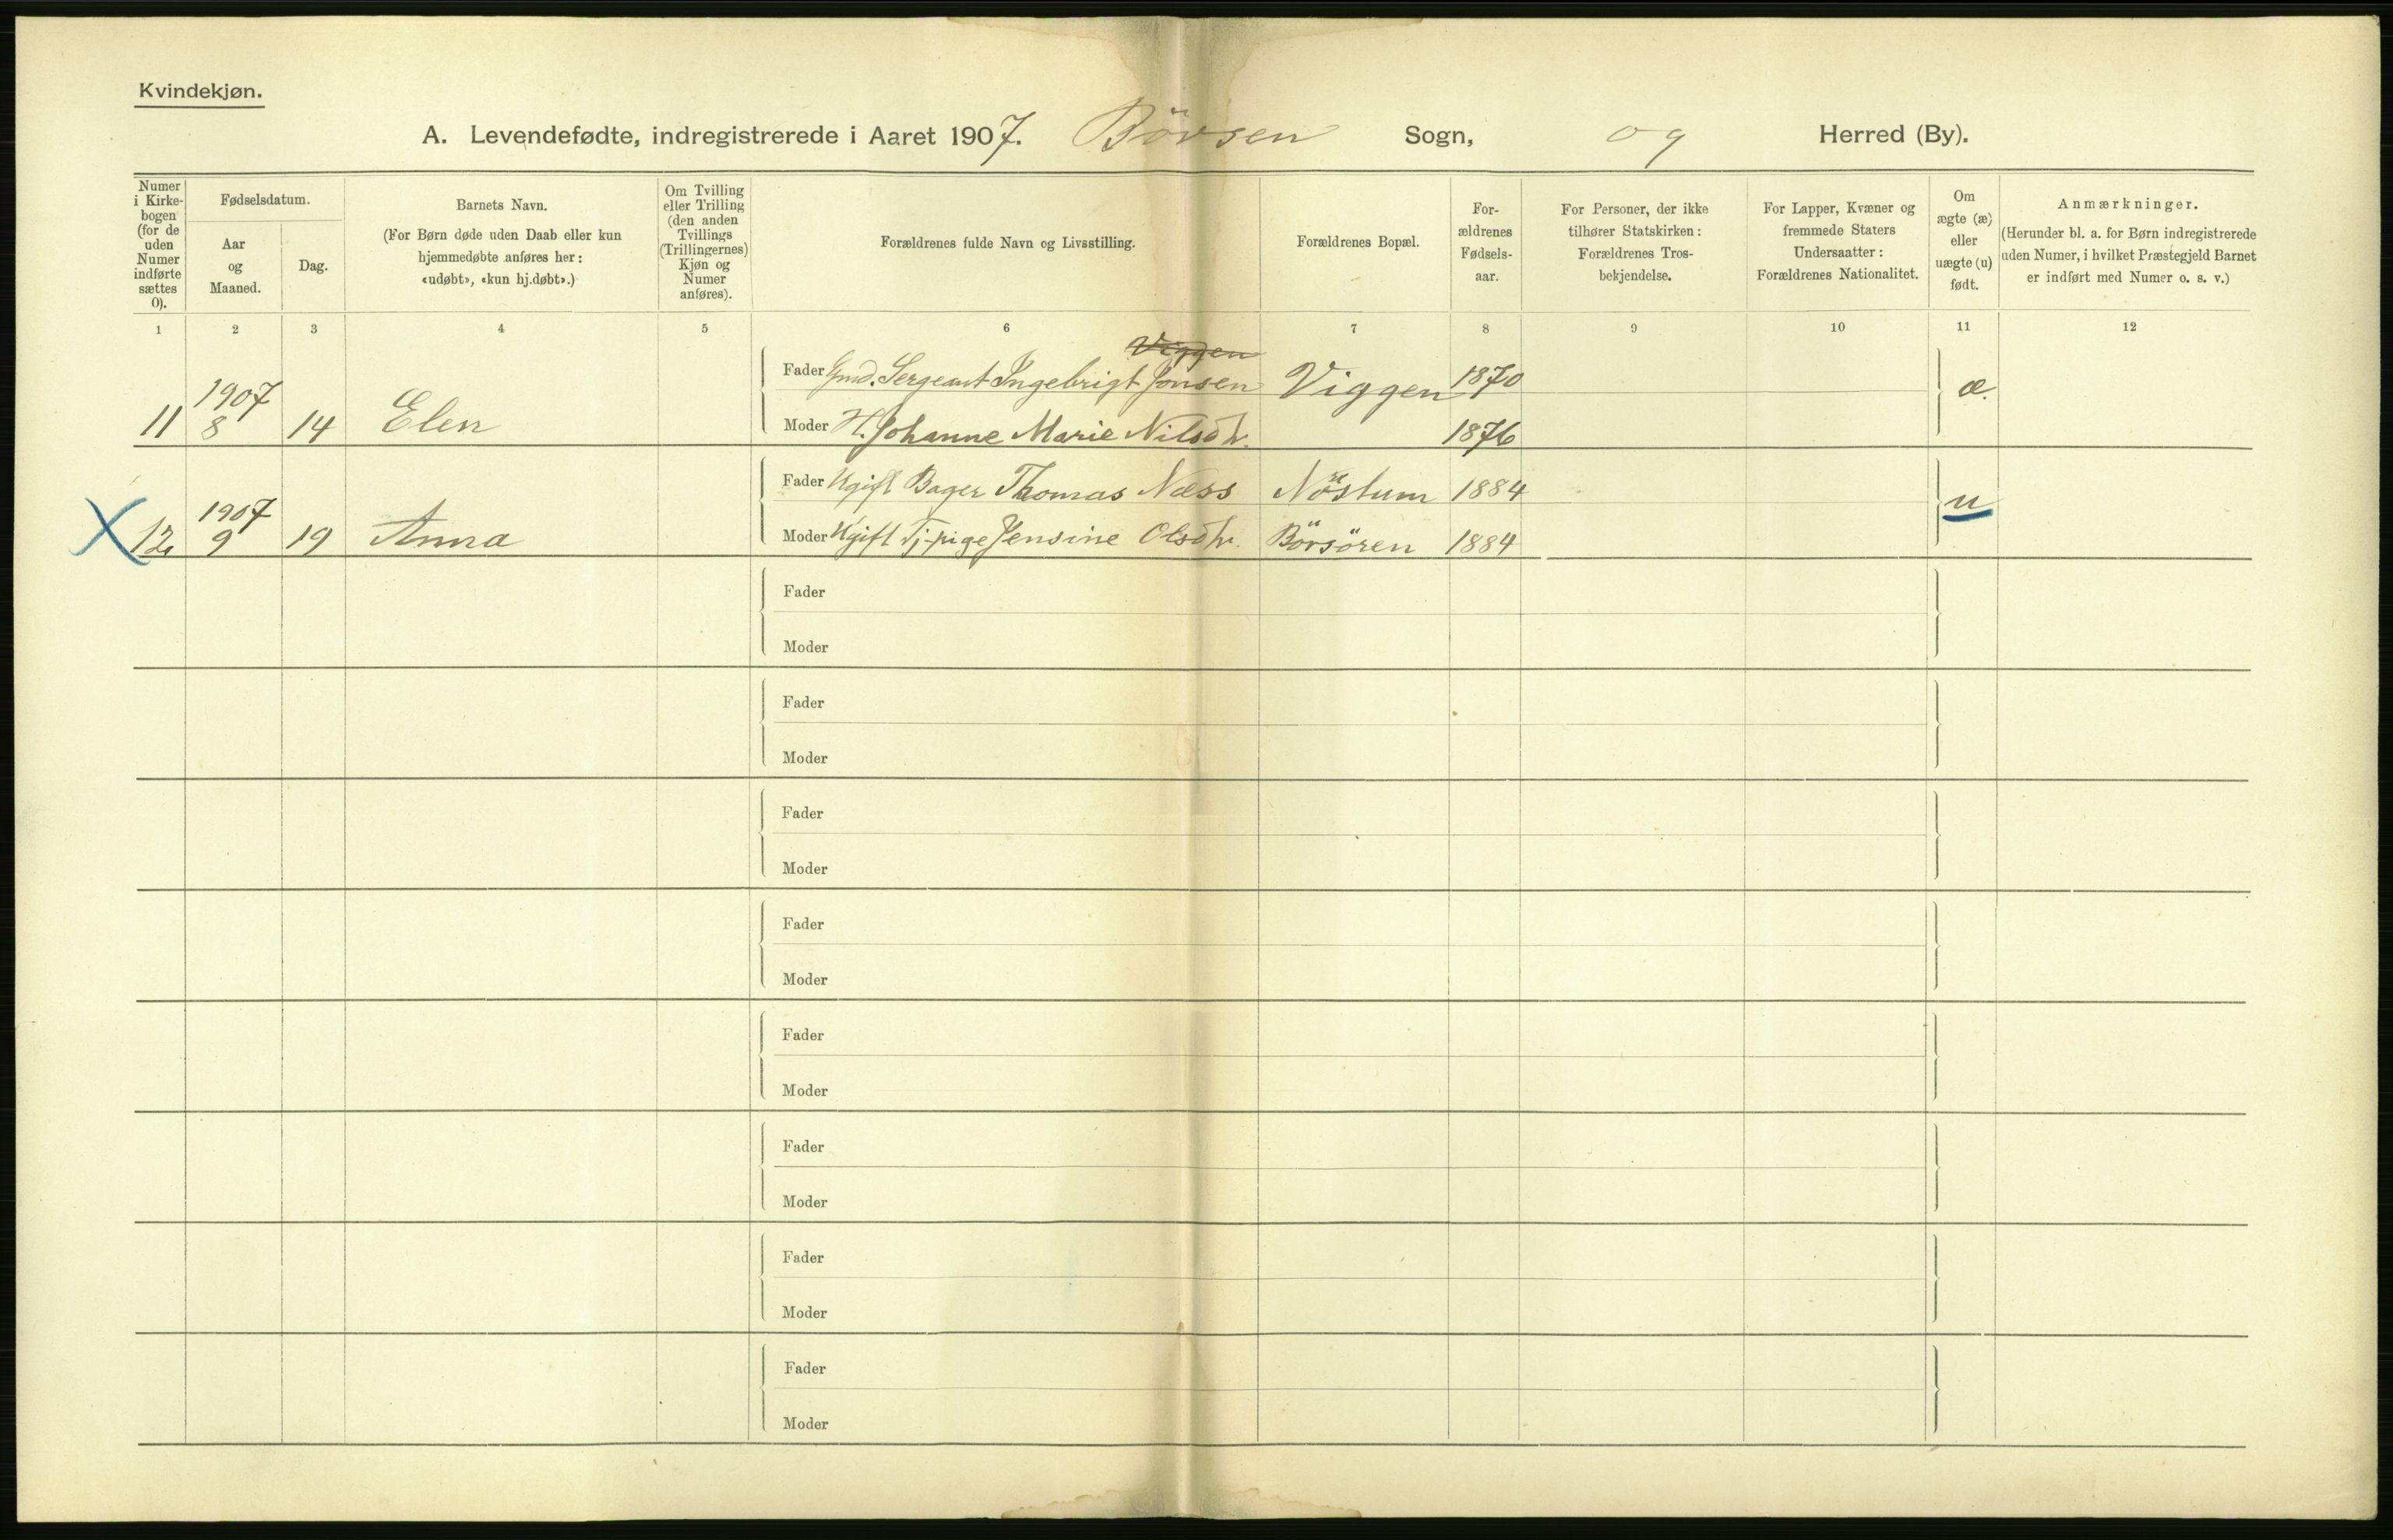 Kvindekjøn.
A. Levendefødte, indregistrerede i Aaret 1907. Börsen Sogn, og Herred (By).
Numer i Kirke-bogen (for de uden Numer indførte sættes 0).
Fødselsdatum.
Aar og Maaned.
Dag.
Barnets Navn.
(For Børn døde uden Daab eller kun
hjemmedøbte anføres her:
«udøbt», «kun hj.døbt».)
Om Tvilling
eller Trilling
(den anden
Tvillings
(Trillingernes)
Kjøn og
Numer
anføres).
Forældrenes fulde Navn og Livsstilling.
Forældrenes Bopæl.
For-
ældrenes
Fødsels-
aar.
For Personer, der ikke
tilhører Statskirken:
Forældrenes Tros-
bekjendelse.
For Lapper, Kvæner og
fremmede Staters
Undersaatter:
Forældrenes Nationalitet.
Om
ægte (æ)
eller
uægte (u)
født.
Anmærkninger.
(Herunder bl. a. for Børn indregistrerede
uden Numer, i hvilket Præstegjeld Barnet
er indført med Numer o. s. v.)
1 2 3 4 5 6 7 8 9 10 11 12
Viggen
Fader Gmd. Sergeant Ingebrigt Jonsen Viggen 1870
11 1907 8 14 Elen æ.
Moder H. Johanne Marie Nilsdtr. 1876
Fader Ugift Bager Thomas Næss Nöstum 1884
X 12 1907 9 19 Anna u
Moder Ugift Tj.pige Jensine Olsdtr. Börsören 1884
Fader
Moder
Fader
Moder
Fader
Moder
Fader
Moder
Fader
Moder
Fader
Moder
Fader
Moder
Fader
Moder